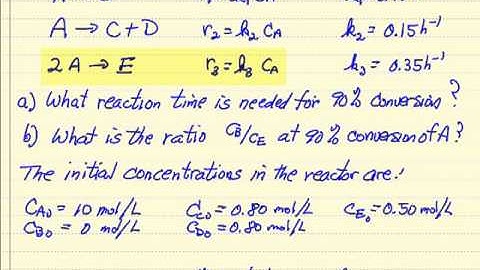 A → C + D r₂ = k₂ C_A k₂ = 0.15 h⁻¹
2 A → E r₃ = k₃ C_A k₃ = 0.35 h⁻¹
a) What reaction time is needed for 90% conversion?
b) What is the ratio C_B/C_E at 90% conversion of A?
The initial concentrations in the reactor are:
C_A0 = 10 mol/L C_C0 = 0.80 mol/L C_E0 = 0.50 mol/L
C_B0 = 0 mol/L C_D0 = 0.80 mol/L